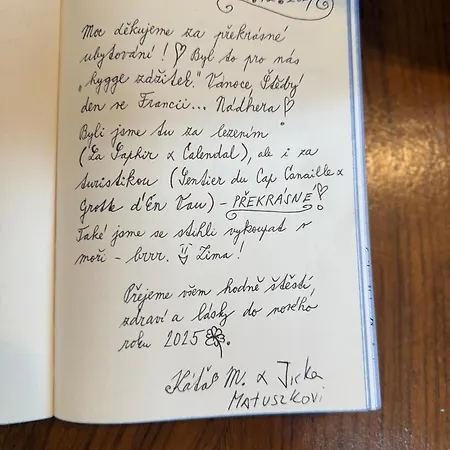 Moc děkujeme za překrásné
ubytování! ♡ Byl to pro nás
„hygge zážitek." Vánoce, Štědrý
den ve Francii... Nádhera♡!
Byli jsme tu za lezením
(La Saphir & Calendal), ale i za
turistikou (Sentier du Cap Canaille &
Grotte d'En Vau) - PŘEKRÁSNÉ♡!
Také jsme se stihli vykoupat v
moři - brrr. Zima!
Přejeme všem hodně štěstí,
zdraví a lásky do nového
roku 2025.
Káťa M. & Jirka
MATUSZKOVI